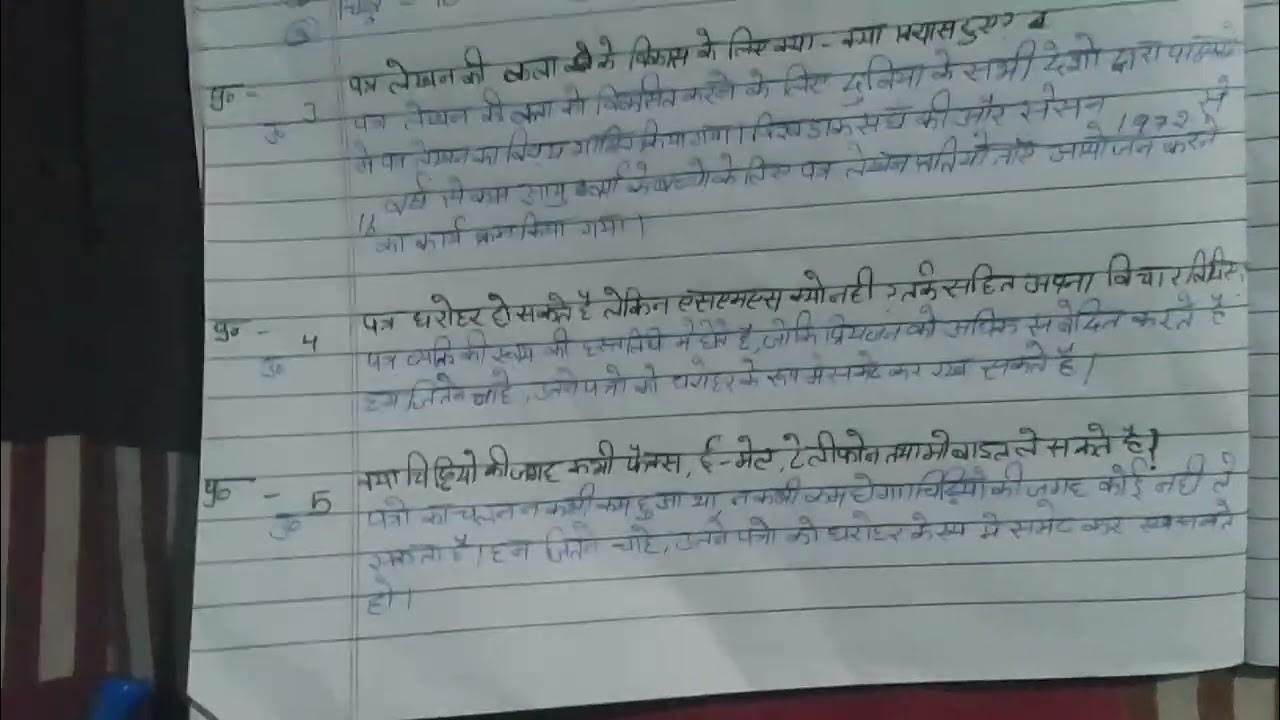 प्र० - 3 पत्र लेखन की कला के विकास के लिए क्या - क्या प्रयास हुए?
उ० पत्र लेखन की कला को विकसित करने के लिए दुनिया के सभी देशो द्वारा
मे पत्र लेखन का विषय शामिल किया गया। विश्व डाक संघ की और से सन 1972 से
16 वर्ष से कम आयु वर्ग के बच्चो के लिए पत्र लेखन आयोजन करने
का कार्य किया गया।
प्र० - 4 पत्र धरोहर हो सकते है लेकिन एसएमएस क्यो नही तर्क सहित अपना विचार लिखिए।
उ० पत्र व्यक्ति की स्वयं की हस्तलिपि मे होते है, जोकि प्रियजन को अधिक संवेदित करते है
हम जितने चाहे, उतने पत्रो को धरोहर के रूप मे समेट कर रख सकते है।
प्र० - 5 क्या चिट्ठियो की जगह कभी फैक्स, ई-मेल, टेलीफोन तथा मोबाइल ले सकते है?
उ० पत्रो का चलन न कभी कम हुआ था न कभी कम होगा। चिट्ठियो की जगह कोई नही ले
सकता है। हम जितने चाहे, उतने पत्रो को धरोहर के रूप मे समेट कर रख सकते
हो।